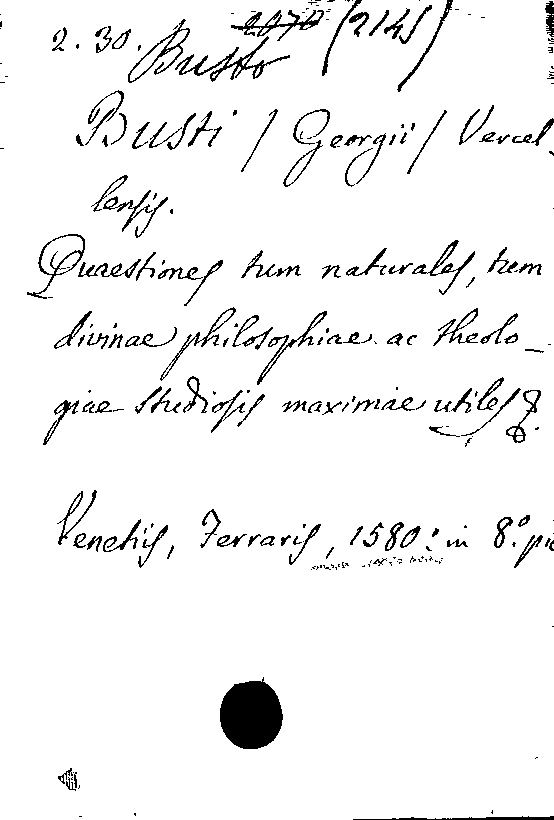 2.30. 2070 (2145)
Busto
Busti / Georgii / Vercel-
lensis.
Quaestiones tum naturales, tum
divinae philosophiae ac theolo-
giae studiosis maximae utiles &.
Venetiis, Ferraris, 1580: in 8.º pic